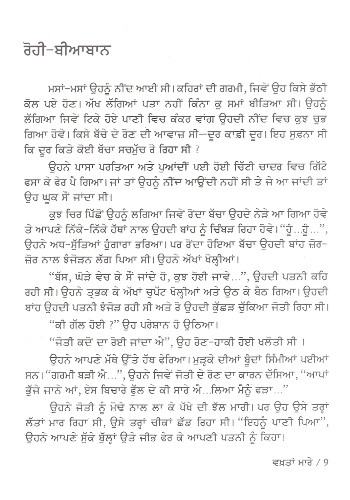 ਰੋਹੀ-ਬੀਆਬਾਨ
ਮਸਾਂ-ਮਸਾਂ ਉਹਨੂੰ ਨੀਂਦ ਆਈ ਸੀ। ਕਹਿਰਾਂ ਦੀ ਗਰਮੀ, ਜਿਵੇਂ ਉਹ ਕਿਸੇ ਭੱਠੀ
ਕੋਲ ਪਏ ਹੋਣ। ਅੱਖ ਲੱਗਿਆਂ ਪਤਾ ਨਹੀਂ ਕਿੰਨਾ ਕੁ ਸਮਾਂ ਬੀਤਿਆ ਸੀ। ਉਹਨੂੰ
ਲੱਗਿਆ ਜਿਵੇਂ ਟਿਕੇ ਹੋਏ ਪਾਣੀ ਵਿਚ ਕੰਕਰ ਵਾਂਗ ਉਹਦੀ ਨੀਂਦ ਵਿਚ ਕੁਝ ਚੁਭ
ਗਿਆ ਹੋਵੇ। ਕਿਸੇ ਬੱਚੇ ਦੇ ਰੋਣ ਦੀ ਆਵਾਜ਼ ਸੀ—ਦੂਰ ਕਾਫ਼ੀ ਦੂਰ। ਇਹ ਸੁਫਨਾ ਸੀ
ਕਿ ਦੂਰ ਕਿਤੇ ਕੋਈ ਬੱਚਾ ਸਚਮੁੱਚ ਰੋ ਰਿਹਾ ਸੀ ?
ਉਹਨੇ ਪਾਸਾ ਪਰਤਿਆ ਅਤੇ ਪੁਆਂਦੀਂ ਪਈ ਹੋਈ ਚਿੱਟੀ ਚਾਦਰ ਵਿਚ ਗਿੱਟੇ
ਫਸਾ ਕੇ ਫੇਰ ਪੈ ਗਿਆ। ਜਾਂ ਤਾਂ ਉਹਨੂੰ ਨੀਂਦ ਆਉਂਦੀ ਨਹੀਂ ਸੀ ਤੇ ਜੇ ਆ ਜਾਂਦੀ ਤਾਂ
ਉਹ ਘੂਕ ਸੌਂ ਜਾਂਦਾ ਸੀ।
ਕੁਝ ਚਿਰ ਪਿੱਛੋਂ ਉਹਨੂੰ ਲਗਿਆ ਜਿਵੇਂ ਰੋਂਦਾ ਬੱਚਾ ਉਹਦੇ ਨੇੜੇ ਆ ਗਿਆ ਹੋਵੇ
ਤੇ ਆਪਣੇ ਨਿੱਕੇ-ਨਿੱਕੇ ਹੱਥਾਂ ਨਾਲ ਉਹਦੀ ਬਾਂਹ ਨੂੰ ਚਿੰਬੜ ਰਿਹਾ ਹੋਵੇ। "ਹੂੰ...ਹੂੰ...",
ਉਹਨੇ ਅਧ-ਸੁੱਤਿਆਂ ਹੁੰਗਾਰਾ ਭਰਿਆ। ਪਰ ਰੋਂਦਾ ਹੋਇਆ ਬੱਚਾ ਉਹਦੀ ਬਾਂਹ ਜ਼ੋਰ-
ਜ਼ੋਰ ਨਾਲ ਝੰਜੋੜਨ ਲੱਗ ਪਿਆ ਸੀ। ਉਹਨੇ ਅੱਖਾਂ ਖੋਲ੍ਹੀਆਂ।
"ਬੱਸ, ਘੋੜੇ ਵੇਚ ਕੇ ਸੌਂ ਜਾਂਦੇ ਹੋ, ਕੁਝ ਹੋਈ ਜਾਵੇ...", ਉਹਦੀ ਪਤਨੀ ਕਹਿ
ਰਹੀ ਸੀ। ਉਹਨੇ ਤ੍ਰਭਕ ਕੇ ਅੱਖਾਂ ਚੁਪੱਟ ਖੋਲ੍ਹੀਆਂ ਅਤੇ ਉਠ ਕੇ ਬੈਠ ਗਿਆ। ਉਹਦੀ
ਬਾਂਹ ਉਹਦੀ ਪਤਨੀ ਝੰਜੋੜ ਰਹੀ ਸੀ ਅਤੇ ਰੋ ਉਹਦੀ ਕੁੱਛੜ ਚੁੱਕਿਆ ਜੋਤੀ ਰਿਹਾ ਸੀ।
"ਕੀ ਗੱਲ ਹੋਈ ?" ਉਹ ਪਰੇਸ਼ਾਨ ਹੋ ਉਠਿਆ।
"ਜੋਤੀ ਕਦੋਂ ਦਾ ਰੋਈ ਜਾਂਦਾ ਐ", ਉਹ ਰੋਣ-ਹਾਕੀ ਹੋਈ ਖਲੋਤੀ ਸੀ ।
ਉਹਨੇ ਆਪਣੇ ਮੱਥੇ ਉੱਤੇ ਹੱਥ ਫੇਰਿਆ। ਮੁੜ੍ਹਕੇ ਦੀਆਂ ਬੂੰਦਾਂ ਸਿੰਮੀਆਂ ਪਈਆਂ
ਸਨ। "ਗਰਮੀ ਬੜੀ ਐ...", ਉਹਨੇ ਜਿਵੇਂ ਜੋਤੀ ਦੇ ਰੋਣ ਦਾ ਕਾਰਨ ਦੱਸਿਆ, "ਆਪਾਂ
ਭੁੱਜੇ ਜਾਨੇ ਆਂ, ਏਸ ਬਿਚਾਰੇ ਫੁੱਲ ਦੇ ਕੀ ਸਾਰੇ ਐ...ਲਿਆ ਮੈਨੂੰ ਫੜਾ..."
ਉਹਨੇ ਜੋਤੀ ਨੂੰ ਮੋਢੇ ਨਾਲ ਲਾ ਕੇ ਪੱਖੇ ਦੀ ਝੱਲ ਮਾਰੀ। ਪਰ ਉਹ ਉਸੇ ਤਰ੍ਹਾਂ
ਲੱਤਾਂ ਮਾਰ ਰਿਹਾ ਸੀ, ਉਸੇ ਤਰ੍ਹਾਂ ਚੀਕਾਂ ਛੱਡ ਰਿਹਾ ਸੀ। "ਇਹਨੂੰ ਪਾਣੀ ਪਿਆ",
ਉਹਨੇ ਆਪਣੇ ਸੁੱਕੇ ਬੁੱਲ੍ਹਾਂ ਉਤੇ ਜੀਭ ਫੇਰ ਕੇ ਆਪਣੀ ਪਤਨੀ ਨੂੰ ਕਿਹਾ।
ਵਖ਼ਤਾਂ ਮਾਰੇ / 9